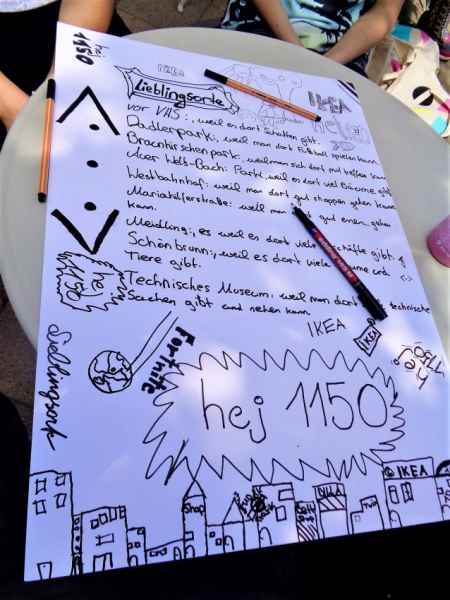 hej
1150
IKEA
Lieblingsorte
IKEA
hej
vor VHS:, weil es dort Schatten gibt.
Dadlerpark:, weil man dort Fußball spielen kann
Braunhirschenpark:, weil man sich dort mit treffen kann
Auer-Welt-Bach Park, weil es dort viel Bäume gibt
Westbahnhof: weil man dort gut shoppen gehen kann
Mariahilferstraße: weil man gut gehen
kann.
Meidling:, weil es dort viele gibt.
Schönbrunn:, weil es dort viele und
Tiere gibt.
Technisches Museum:, weil man dort technische
Sachen gibt und sehen kann
hej
1150
IKEA
IKEA
hej
1150
Fortnite
hej 1150
IKEA
Shop